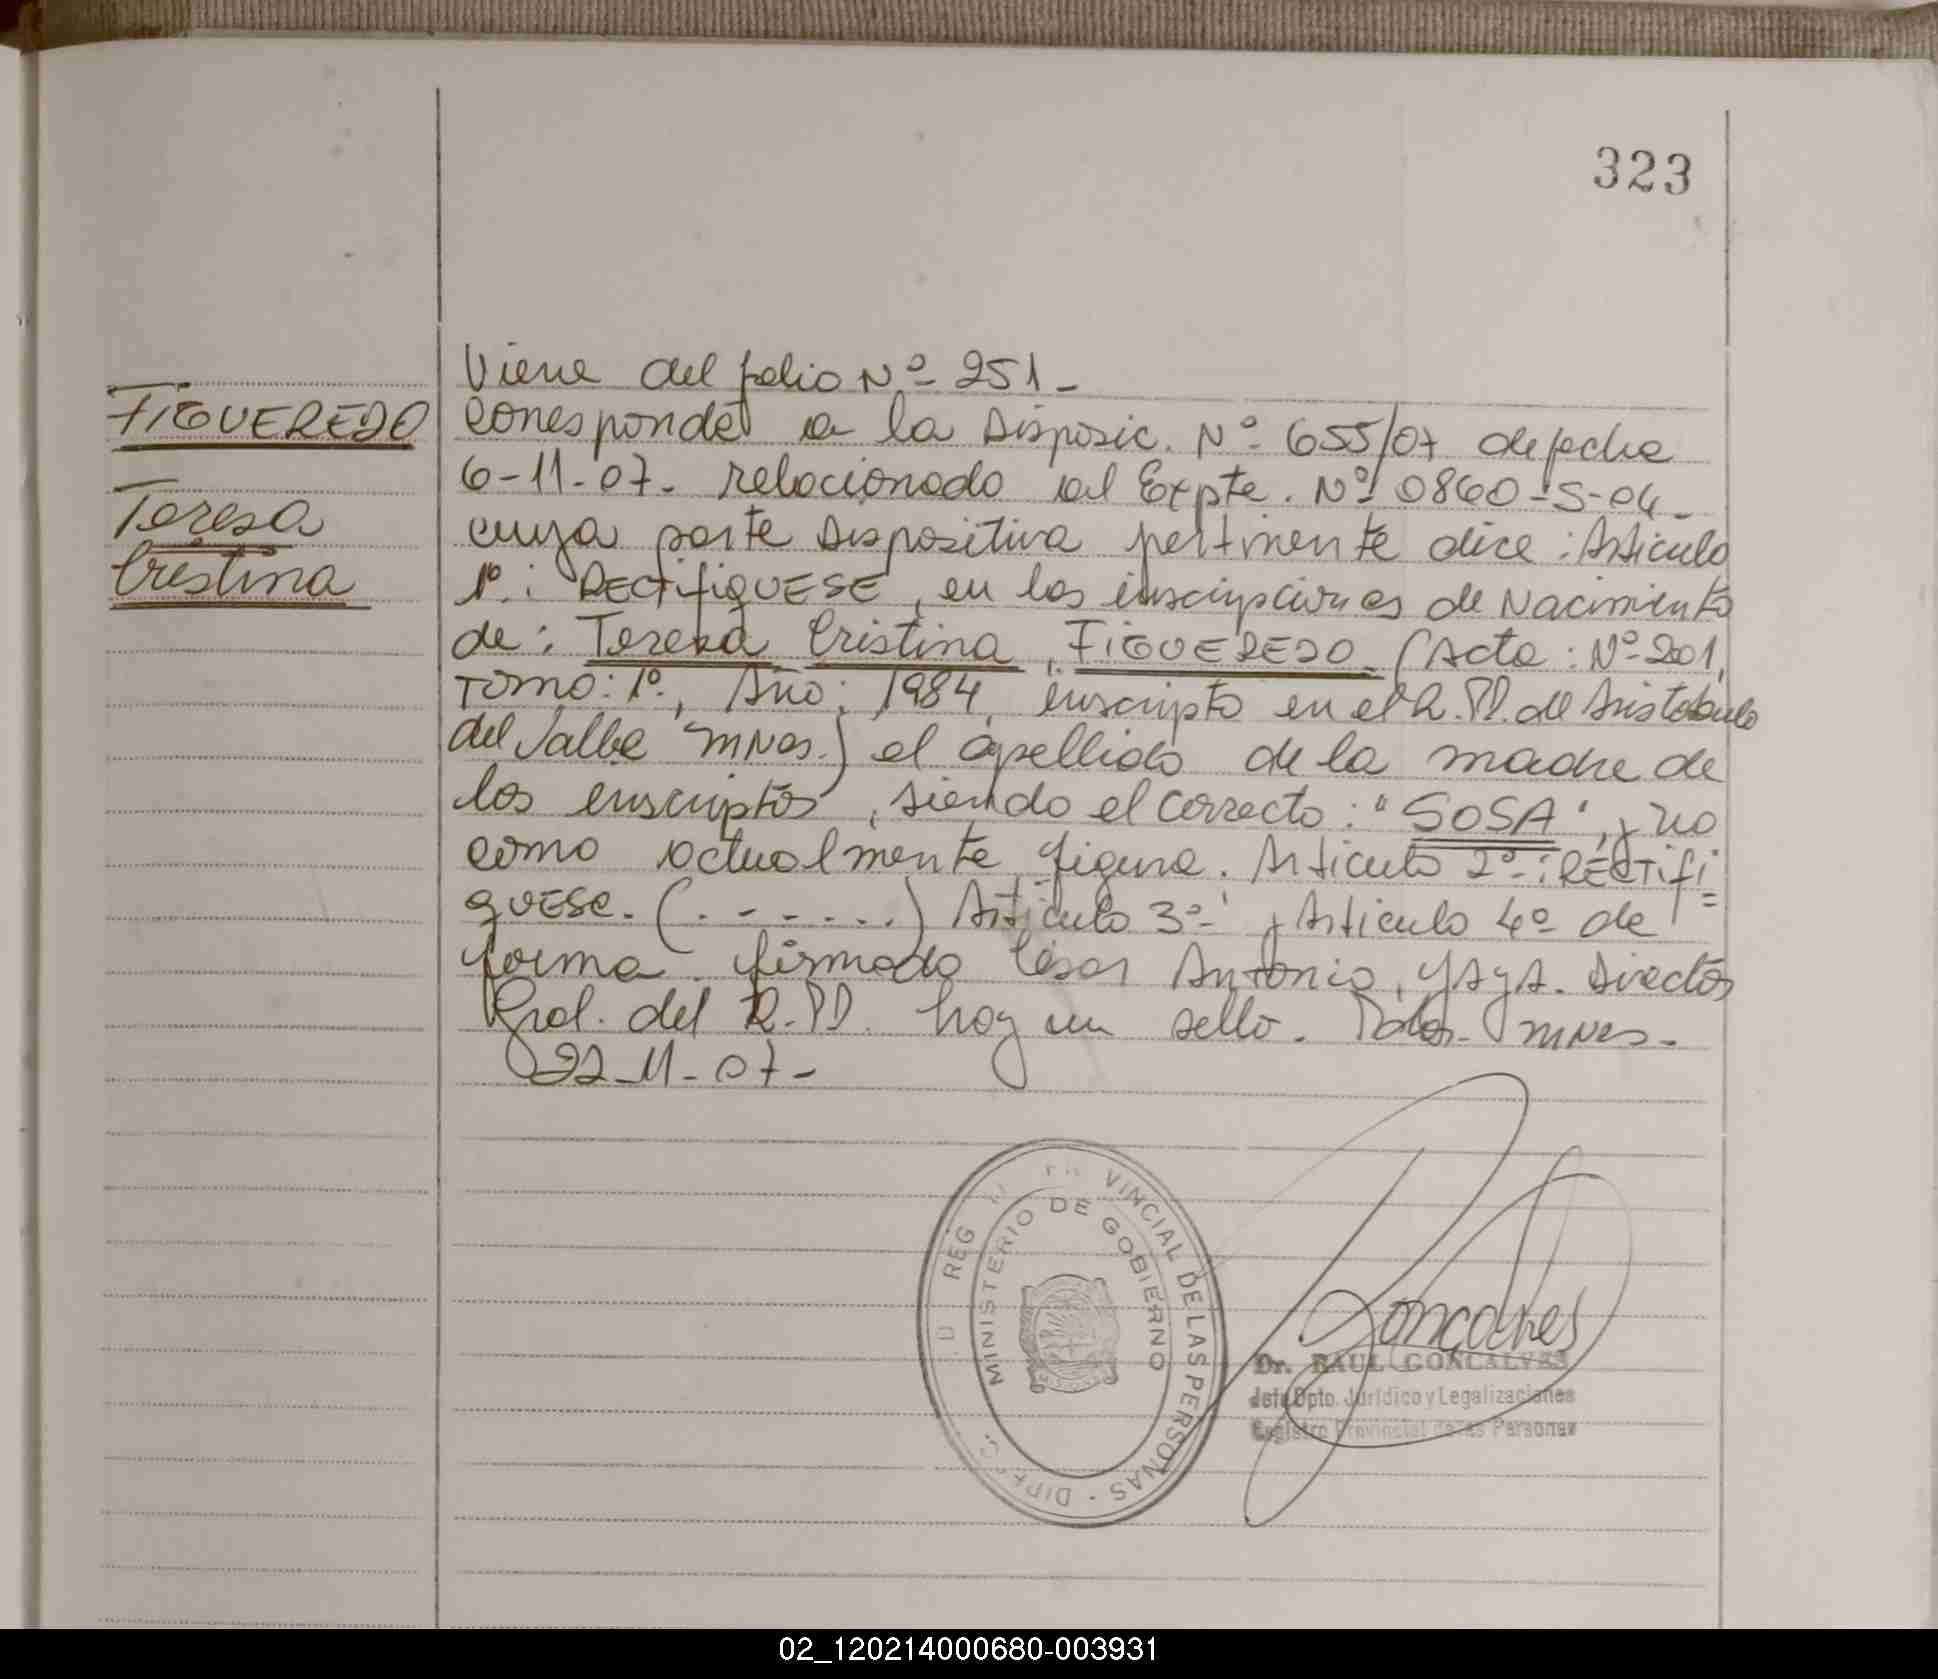 323
FIGUEREDO
Teresa
Cristina
Viene del folio Nº 251-
Corresponde a la Disposic. Nº 655/07 de fecha
6-11-07- relacionado al Expte. Nº 0860-S-04-
cuya parte dispositiva pertinente dice: Articulo
1º: RECTifiQUESE, en las inscripciones de Nacimiento
de: Teresa Cristina, FIGUEREDO (Acta: Nº 201,
Tomo: 1º, Año: 1984, inscripto en el R.PP. de Aristobulo
del Valle Mnes.) el apellido de la madre de
los inscriptos, siendo el correcto: "SOSA", y no
como actualmente figura. Articulo 2º: RECTifi=
quese. (.-----..) Articulo 3º y Articulo 4º de
forma firmado César Antonio, Director
Gral. del R.PP. hay un sello. Pdas. Mnes.
22-11-07-
VINCIAL DE LAS PERSONAS -
MINISTERIO DE GOBIERNO
Goncalves
Dr. RAUL GONCALVES
Jefe Dpto. Jurídico y Legalizaciones
Registro Provincial de las Personas
02_120214000680-003931